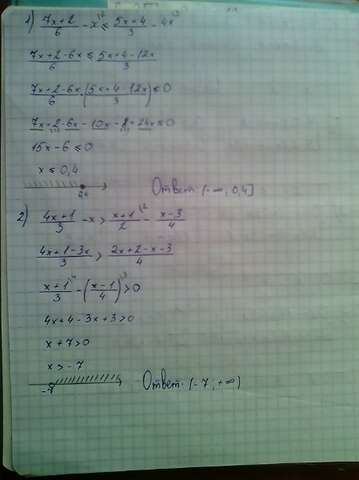 1) (7x+2)/6 - x^{\6} ≤ (5x+4)/3 - 4x^{\3}
(7x+2-6x)/6 ≤ (5x+4-12x)/3
(7x+2-6x)/6 - ((5x+4-12x)/3) ≤ 0
7x+2-6x-10x-8+24x ≤ 0
15x-6 ≤ 0
x ≤ 0,4
0,4
Ответ: (-∞; 0,4]
2) (4x+1)/3 - x > (x+1)/2^{\2} - (x-3)/4
(4x+1-3x)/3 > (2x+2-x-3)/4
(x+1)/3^{\4} - ((x-1)/4)^{\3} > 0
4x+4-3x+3>0
x+7>0
x>-7
-7
Ответ: (-7; +∞)